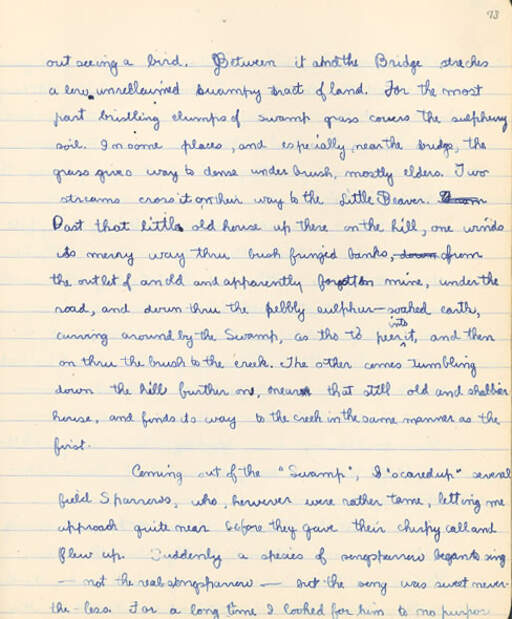 73
out seeing a bird. Between it and the Bridge streches
a low, unreclaimed swampy tract of land. For the most
part bristling clumps of swamp grass covers the sulphury
soil. In some places, and especially near the bridge, the
grass gives way to dense under brush, mostly elders. Two
streams cross it on their way to the Little Beaver.
Past that little old house up there on the hill, one winds
its merry way thru bush fringed banks, down from
the outlet of an old and apparently forgotten mine, under the
road, and down thru the pebbly sulphur-soaked earth,
curving around by the Swamp, as tho to peer into it, and then
on thru the brush to the creek. The other comes tumbling
down the hill further on, near that still old and shabbier
house, and finds its way to the creek in the same manner as the
first.
Coming out of the "Swamp", I "scared up" several
field Sparrows, who, however were rather tame, letting me
approach quite near before they gave their chirpy call and
flew up. Suddenly a species of song sparrow began to sing
— not the real song sparrow — but the song was sweet never-
the-less. For a long time I looked for him to no purpos